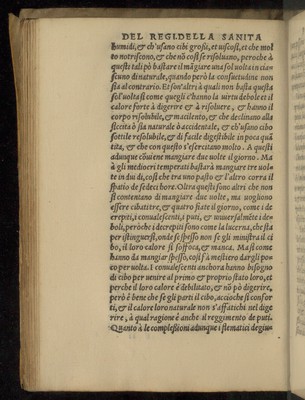 DEL REGI. DELLA SANITA
humidi, & ch'usano cibi grossi, et uiscosi, et che mol
to notriscono, & che nõ cosi se risoluano, peroche à
questi tali pò bastare il mãgiare una sol uolta in cia-
scuno di naturale, quando però la consuetudine non
sia al contrario. Et son'altri à quali non basta questa
sol'uolta si come quegli c'hanno la uirtù debole et il
calore forte à digerire & à risoluere, & hanno il
corpo risolubile, & macilento, & che declinano alla
siccità ò sia naturale ò accidentale, & ch'usano cibo
sottile risolubile, & di facile digestibile in poca quã
tità, & che con questo s'esercitano molto. A questi
adunque cõuiene mangiare due uolte il giorno. Ma
à gli mediocri temperati bastarà mangiare tre uol-
te in dui dì, cosi che tra uno pasto & l'altro corra il
spatio de sedeci hore. Oltra questi sono altri che non
si contentano di mangiare due uolte, ma uogliono
essere cibati tre, & quatro fiate il giorno, come i de-
crepiti, i conualescenti, i puti, & uniuersalmẽte i de-
boli, peroche i decrepiti sono come la lucerna, che sta
per istinguersi, onde se spesso non se gli ministra il ci
bo, il loro calore si soffoca, & manca. Ma si come
hanno da mangiar spesso, cosi fà mestiero dargli po-
co per uolta. I conualescenti anchora hanno bisogno
di cibo per uenire al primo & proprio stato loro, et
perche il loro calore è debilitato, & nõ pò digerire,
però è bene che se gli parti il cibo, accioche si confor
ti, & il calore loro naturale non s'affatichi nel dige
rire, à qual ragione è anche il reggimento de puti.
Quanto à le complessioni adunque i flematici degiu-